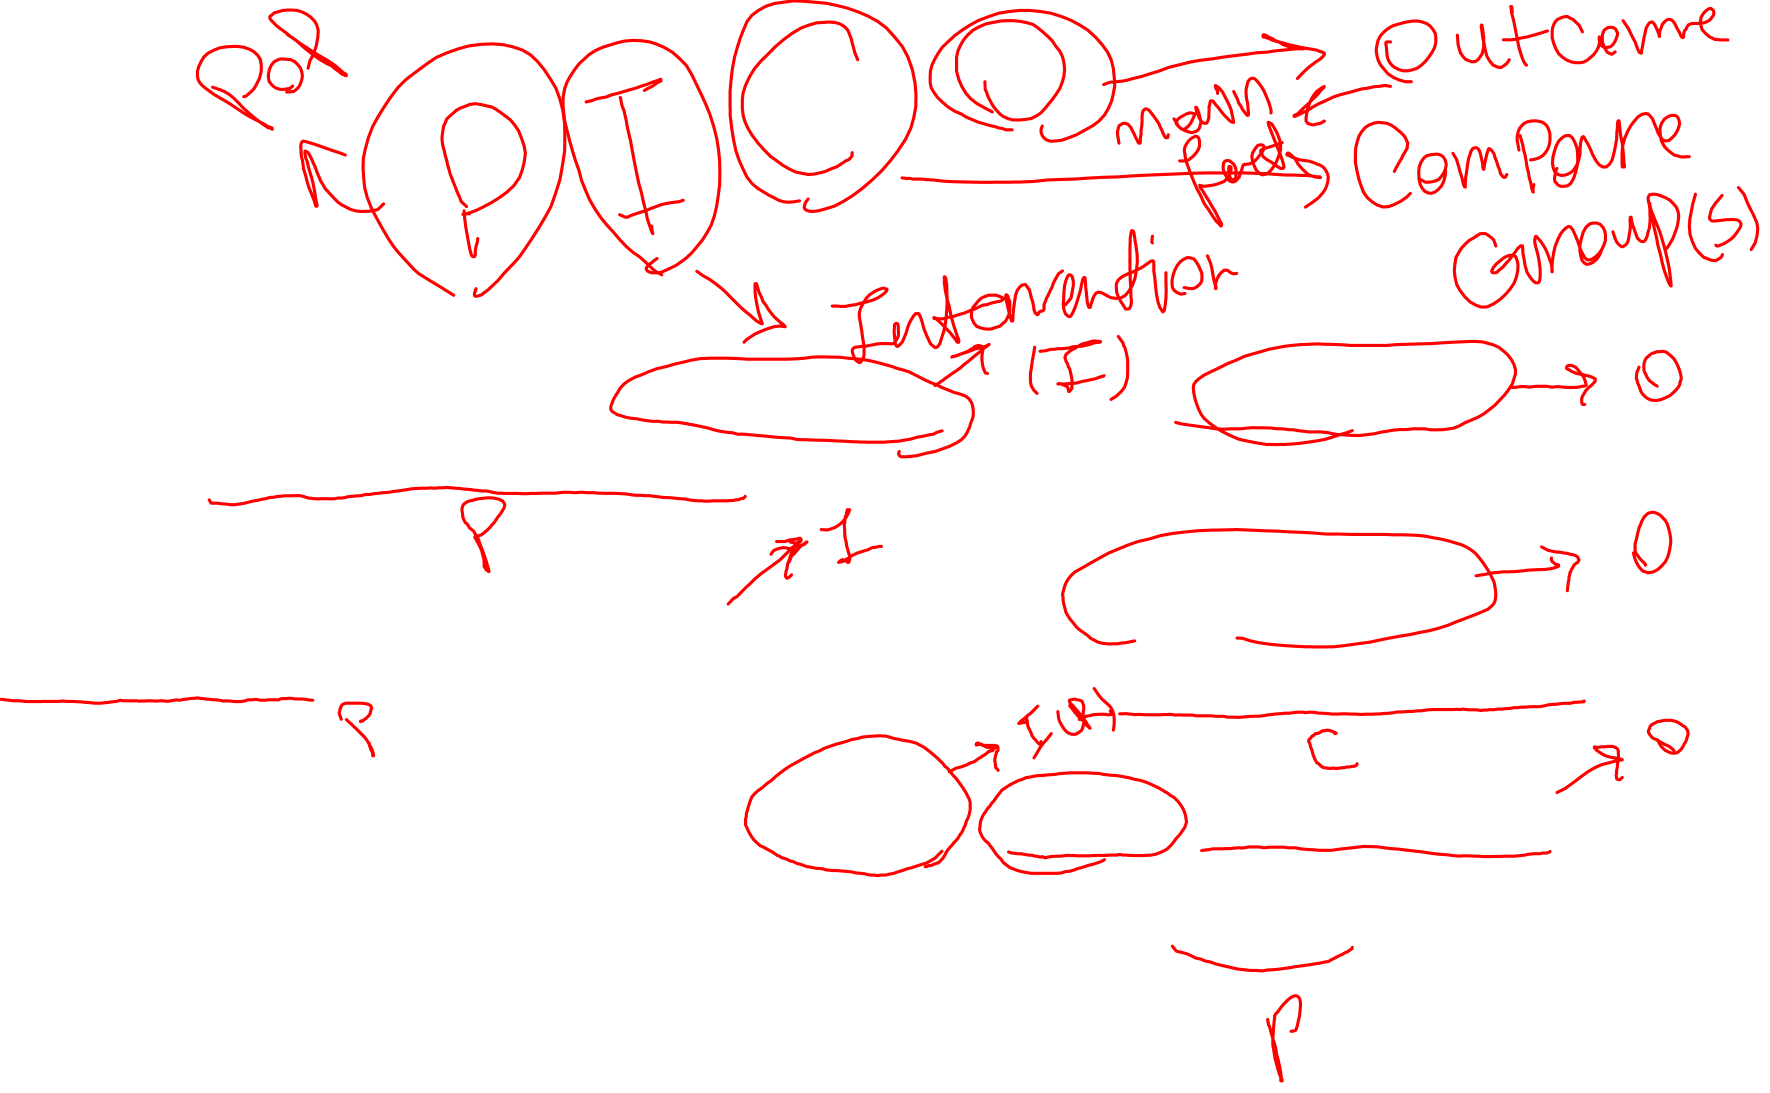 Pop
P I C O
Outcome
main
Compare
Group(s)
Intervention
(I)
O
P
I
O
P
I(R)
C
O
P